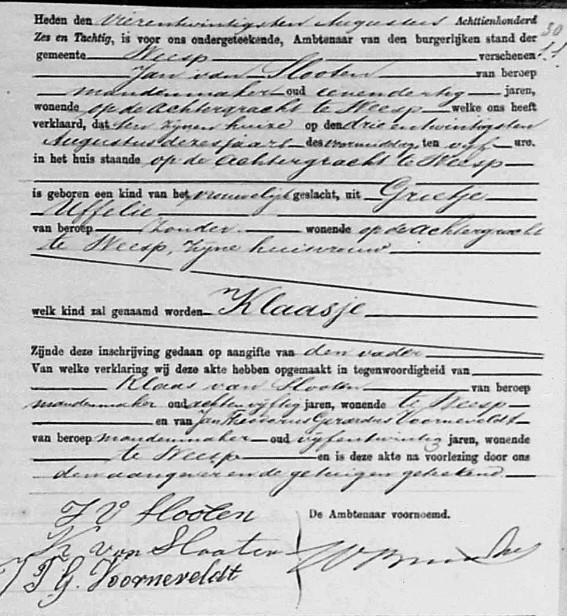 Heden den vierentwintigsten Augustus Achttienhonderd
Zes en Tachtig, is voor ons ondergeteekende, Ambtenaar van den burgerlijken stand der
gemeente Weesp verschenen
Jan van Slooten van beroep
mandenmaker oud eenendertig jaren,
wonende op de Achtergracht te Weesp welke ons heeft
verklaard, dat ten zijnen huize op den drieentwintigsten
Augustus dezes jaars des voormiddag ten vijf ure.
in het huis staande op de Achtergracht te Weesp
is geboren een kind van het vrouwelijk geslacht, uit Grietje
Uffelie
van beroep zonder wonende op de Achtergracht
te Weesp, zijne huisvrouw
welk kind zal genaamd worden Klaasje
Zijnde deze inschrijving gedaan op aangifte van den vader
Van welke verklaring wij deze akte hebben opgemaakt in tegenwoordigheid van
Klaas van Slooten van beroep
mandenmaker oud achtenvijftig jaren, wonende te Weesp
en van Jan Theodorus Gerardus Voorneveldt
van beroep mandenmaker oud vijfentwintig jaren, wonende
te Weesp en is deze akte na voorlezing door ons
den aangever en de getuigen geteekend.
De Ambtenaar voornoemd.
J V Slooten
K van Slooten
J T G. Voorneveldt